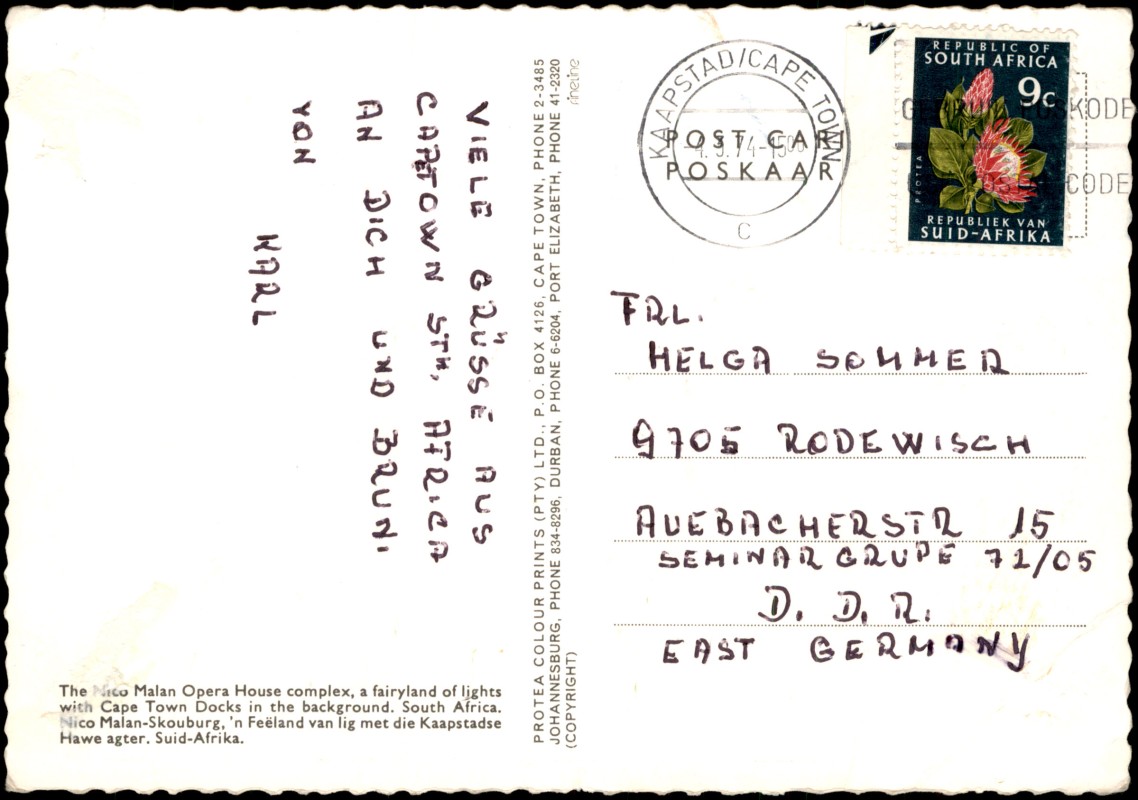 VIELE GRÜSSE AUS
CAPETOWN STH. AFRICA
AN DICH UND BRUNI.
VON
KARL
PROTEA COLOUR PRINTS (PTY) LTD., P.O. BOX 4126, CAPE TOWN, PHONE 2-3485
JOHANNESBURG, PHONE 834-8296, DURBAN, PHONE 6-6204, PORT ELIZABETH, PHONE 41-2320
(COPYRIGHT)
fineline
KAAPSTAD/CAPE TOWN
POST CART
POSKAART
C
POSKODE
CODE
REPUBLIC OF
SOUTH AFRICA
9c
PROTEA
REPUBLIEK VAN
SUID-AFRIKA
FRL.
HELGA SOMMER
9705 RODEWISCH
AUEBACHERSTR 15
SEMINARGRUPE 71/05
D. D. R.
EAST GERMANY
The Nico Malan Opera House complex, a fairyland of lights
with Cape Town Docks in the background. South Africa.
Nico Malan-Skouburg, 'n Feëland van lig met die Kaapstadse
Hawe agter. Suid-Afrika.